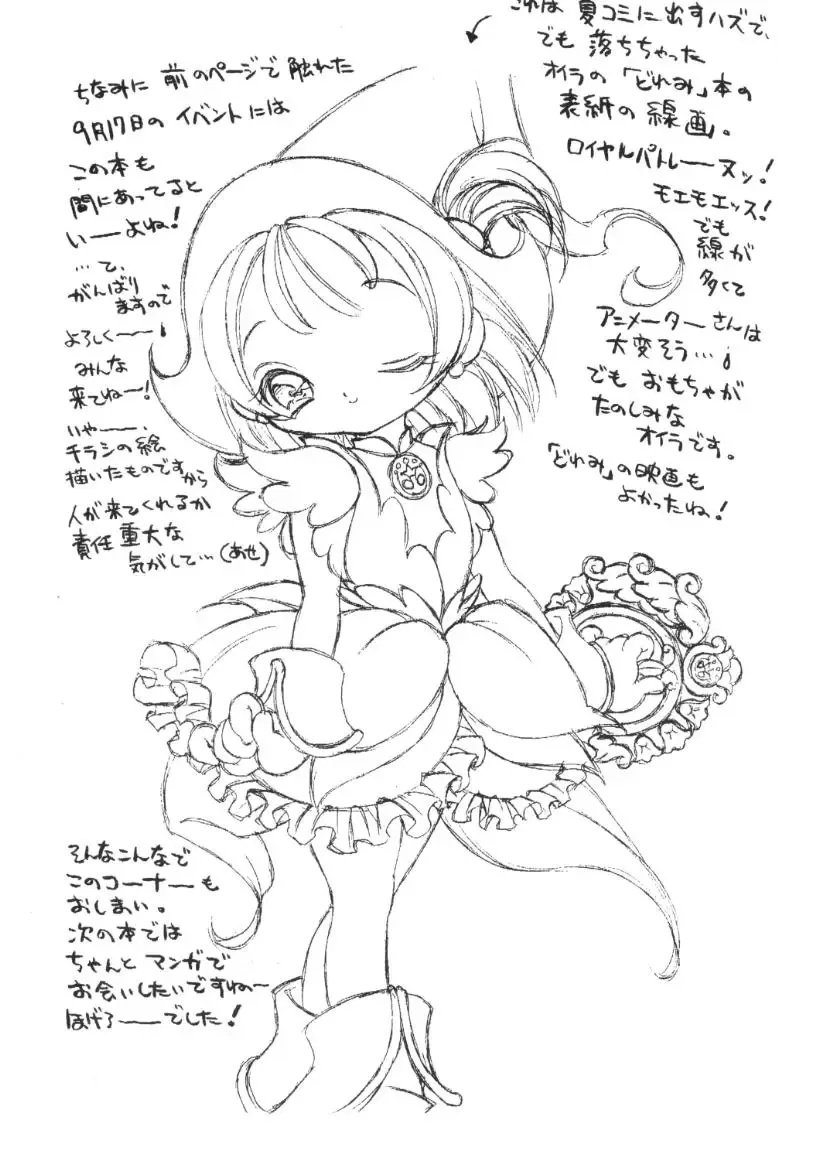 これは 夏コミに出すハズで、
でも 落ちちゃった
オイラの「どれみ」本の
表紙の 線画。
ロイヤルパトレーヌッ!
モエモエッス!
でも
線が
多くて
アニメーターさんは
大変そう…
でも おもちゃが
たのしみな
オイラです。
「どれみ」の映画も
よかったね!
ちなみに 前のページで 触れた
9月17日の イベントには
この本も
間にあってると
いーよね!
…て、
がんばり
ますので
よろしくー
みんな
来てねー!
いやー、
チラシの絵
描いたものですから
人が来てくれるか
責任重大な
気がして…(あせ)
そんなこんなで
このコーナーも
おしまい。
次の本では
ちゃんと マンガで
お会いしたいですね〜
ほげろーでした!